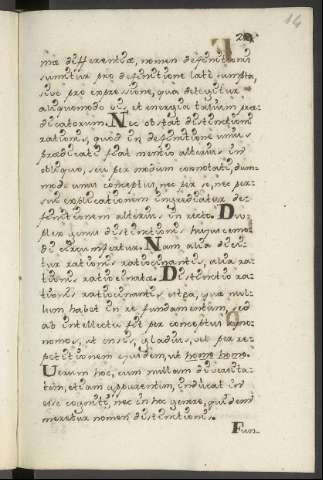 14
ma differentiæ, nomen definitionis
sumitur pro definitione latè sumpta,
sive pro expressione, qua detegitur
aliquomodo vis, et energia talium præ-
dicatorum. Nec obstat distinctioni
rationis, quod in definitione unius
prædicati fiat mentio alterius in
obliquo, seu per modum connotati, dum-
modo unius conceptus, nec per se, nec per
suj explicationem ingrediatur de-
finitionem alterius in recto. Du-
plex genus distinctionis hujuscemo-
di circumfertur. Nam alia dici-
tur rationis ratiocinantis, alia ra-
tionis ratiocinatæ. Distinctio ra-
tionis ratiocinantis est pa, quæ nul-
lum habet in re fundamentum, sed
ab intellectu fit per conceptus syno-
nomos, ut ensis, gladius, vel per re-
petitionem ejusdem, ut homo homo.
Verum hoc, cum nullam diversita-
tem, etiam apparentem, inducat in
esse cogniti, nec in hoc genere, quidem
meretur nomen distinctionis.
Fun-